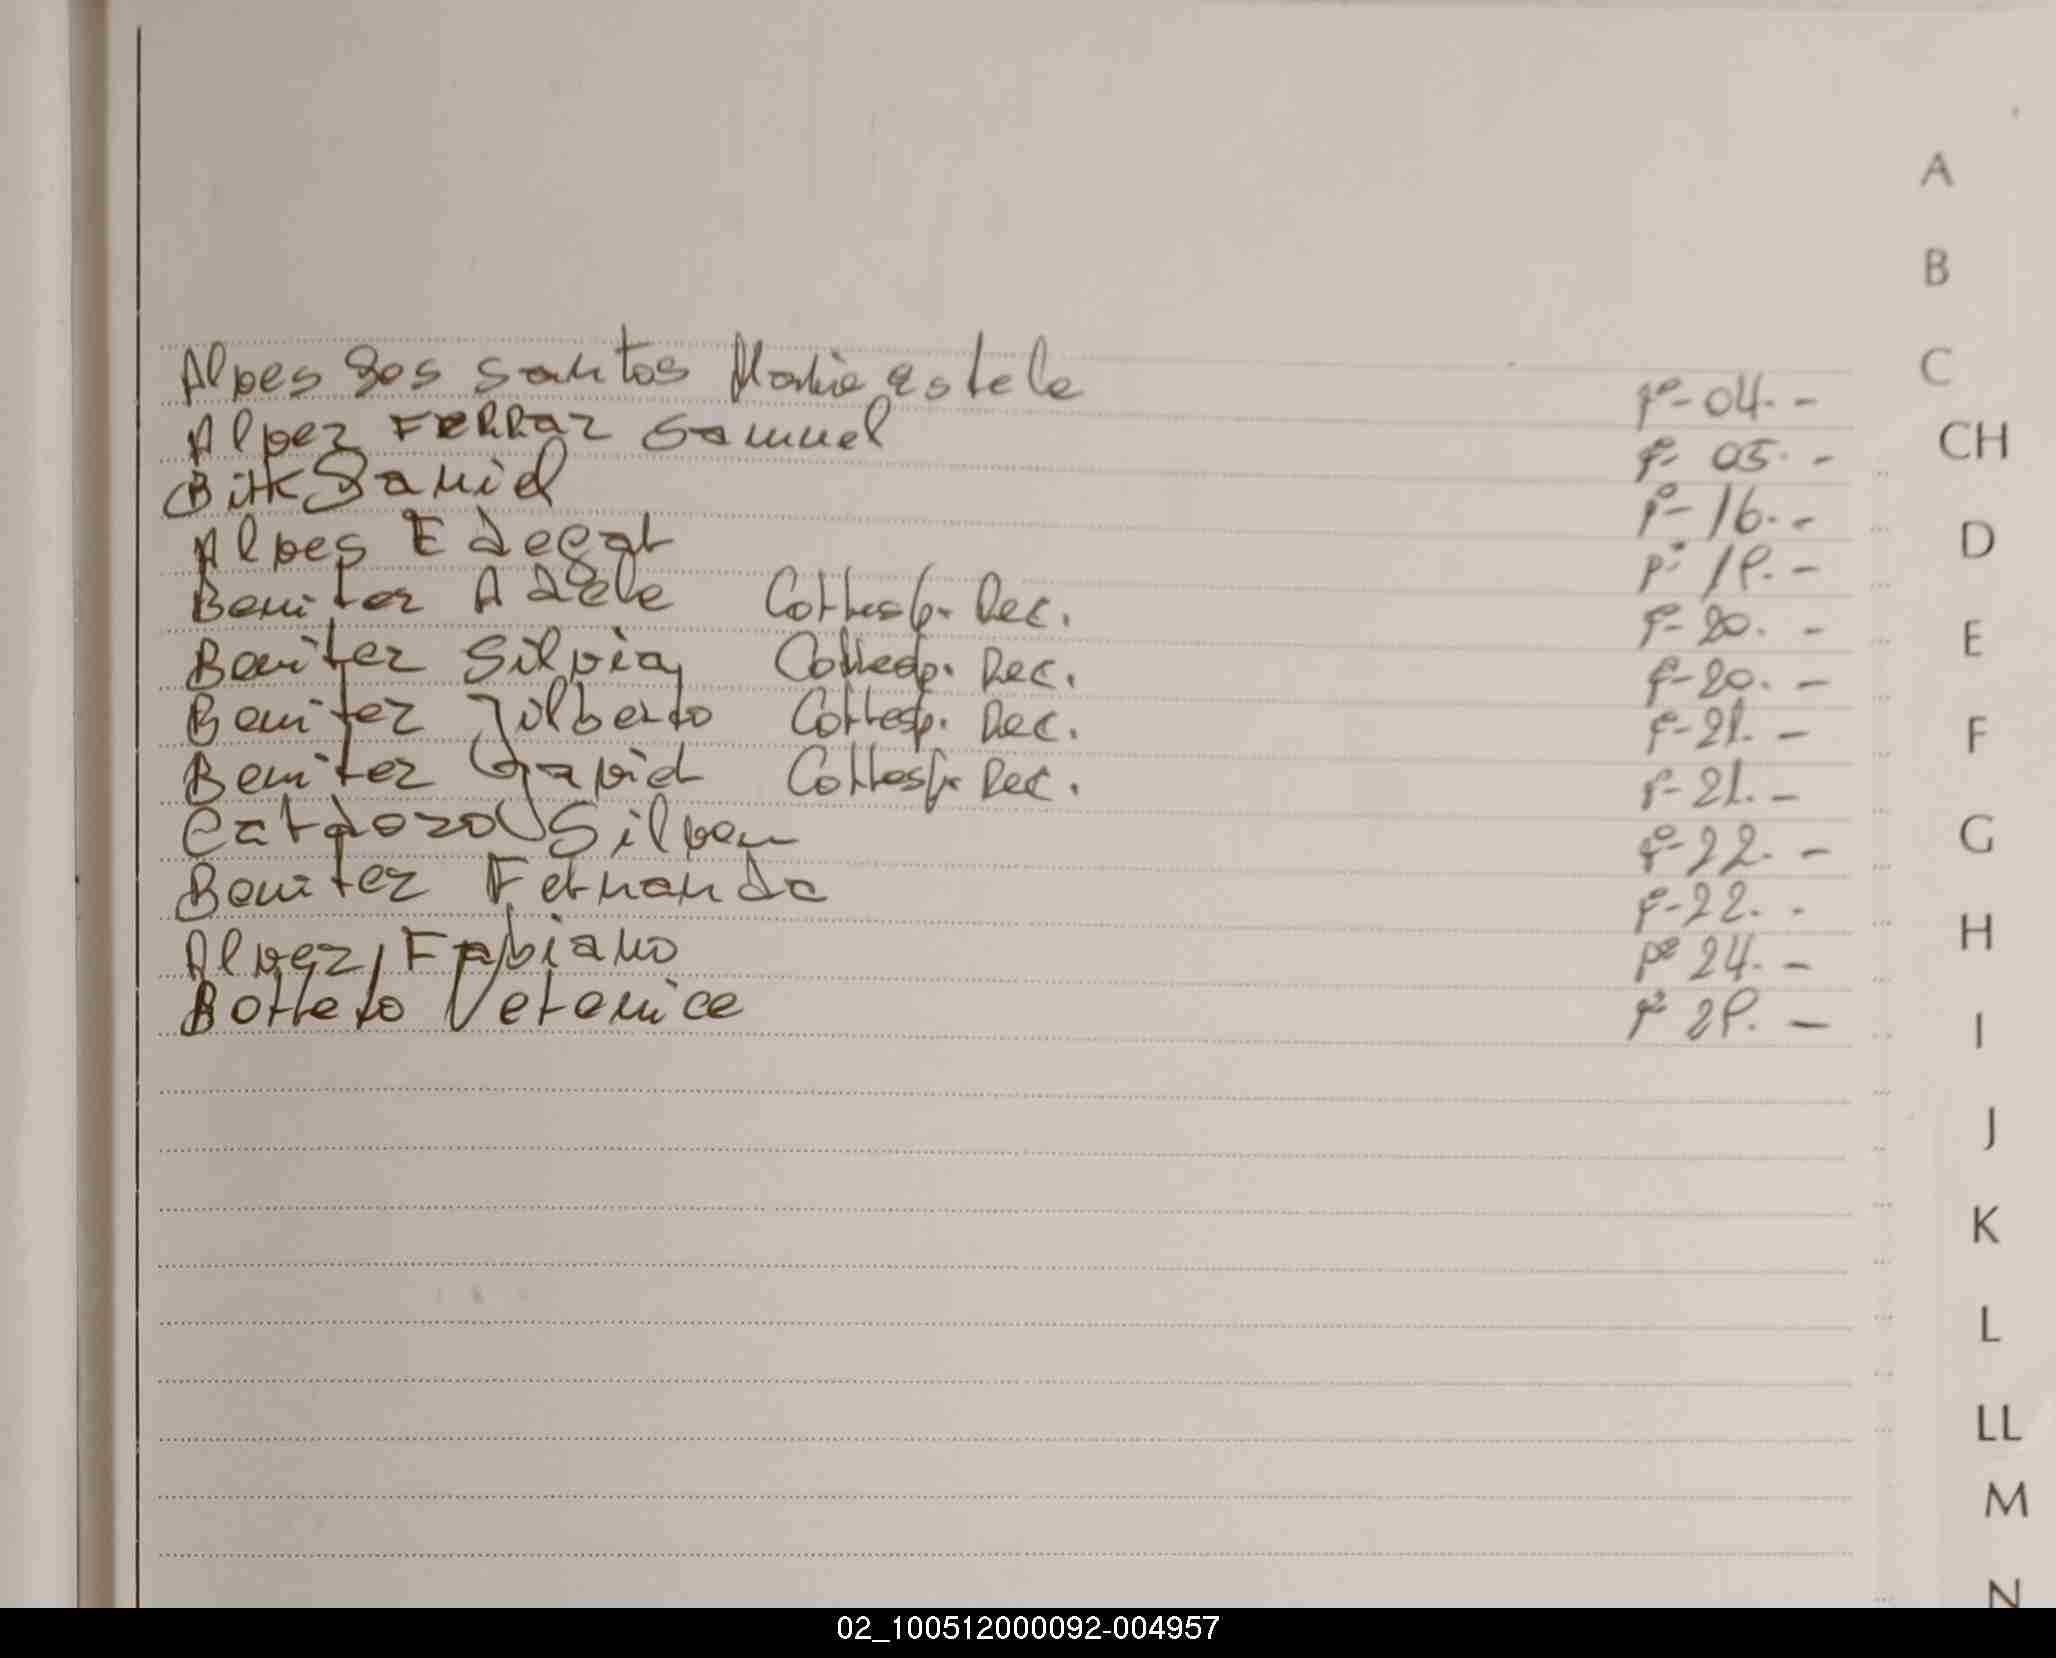 A
B
Alves dos santos Maria estela fº-04.-
C
Alvez FERRAZ Samuel fº- 05.-
CH
Birk Daniel fº-16.-
Alves Edegar fº 19.-
D
Benitez Adele Corresp. Rec. fº-20.-
Benitez Silvia Corresp. Rec. fº-20.-
E
Benitez Jilberto Corresp. Rec. fº-21.-
F
Benitez David Corresp. Rec. fº-21.-
Cardozo Silven fº-22.-
G
Benitez Fernanda fº-22.-
Alvez, Fabiano fº 24.-
H
Borreto Verenice fº 29.-
I
J
K
L
LL
M
N
02_100512000092-004957